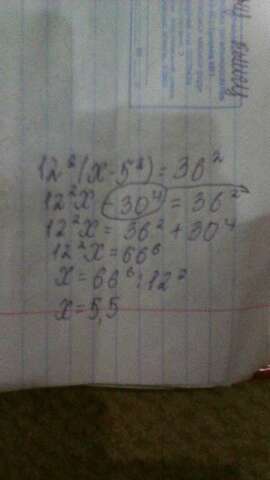 12²(x-5²)=36²
12²x-30⁴=36²
12²x=36²+30⁴
12²x=66⁶
x=66⁶:12²
x=5,5